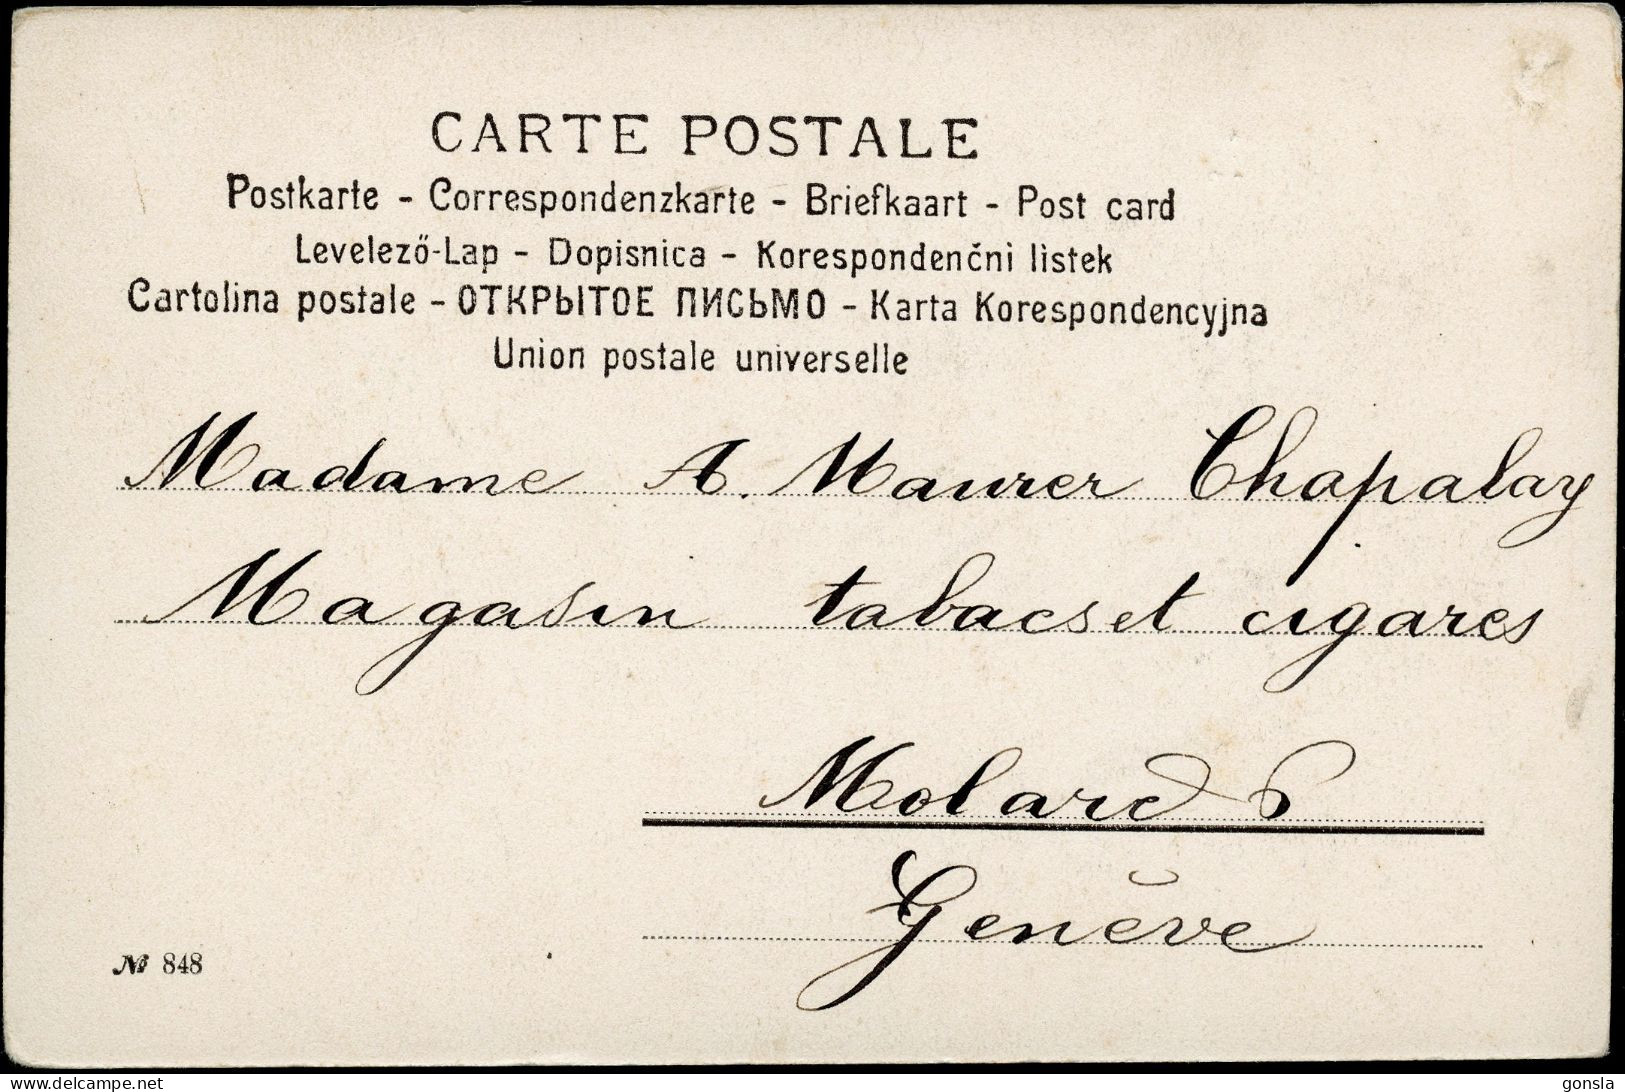 CARTE POSTALE
Postkarte - Correspondenzkarte - Briefkaart - Post card
Levelező-Lap - Dopisnica - Korespondenční listek
Cartolina postale - ОТКРЫТОЕ ПИСЬМО - Karta Korespondencyjna
Union postale universelle
Madame A. Maurer Chapalay
Magasin tabacs et cigares
Molard
Genève
№ 848
gonsla
delcampe.net